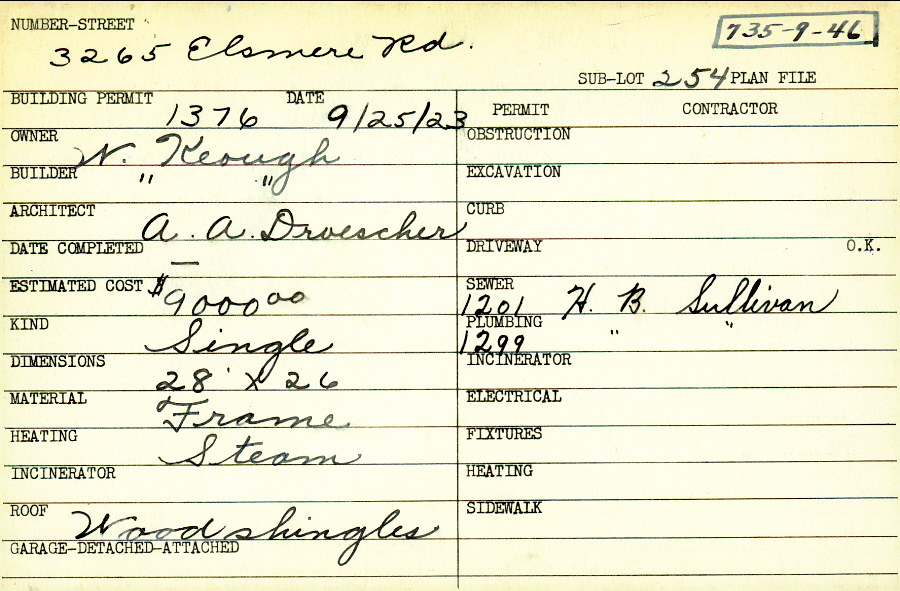 NUMBER-STREET
3265 Elsmere Rd.
735-9-46
SUB-LOT 254 PLAN FILE
BUILDING PERMIT 1376 DATE 9/25/23
PERMIT CONTRACTOR
OWNER W. Keough
OBSTRUCTION
BUILDER " "
EXCAVATION
ARCHITECT A. A. Droescher
CURB
DATE COMPLETED —
DRIVEWAY O.K.
ESTIMATED COST $9000 00
SEWER
1201 H. B. Sullivan
KIND Single
PLUMBING
1299 " "
DIMENSIONS 28' X 26
INCINERATOR
MATERIAL Frame
ELECTRICAL
HEATING Steam
FIXTURES
INCINERATOR
HEATING
ROOF Wood shingles
SIDEWALK
GARAGE-DETACHED-ATTACHED